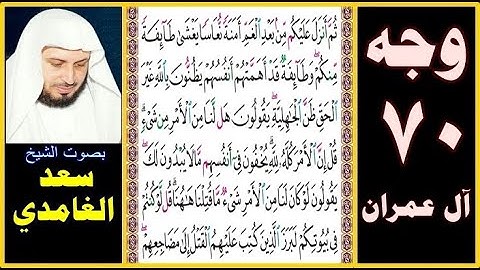 وجه
٧٠
آل عمران
ثُمَّ أَنزَلَ عَلَيْكُم مِّنۢ بَعْدِ ٱلْغَمِّ أَمَنَةً نُّعَاسًا يَغْشَىٰ طَآئِفَةً
مِّنكُمْ ۖ وَطَآئِفَةٌ قَدْ أَهَمَّتْهُمْ أَنفُسُهُمْ يَظُنُّونَ بِٱللَّهِ غَيْرَ
ٱلْحَقِّ ظَنَّ ٱلْجَـٰهِلِيَّةِ ۖ يَقُولُونَ هَل لَّنَا مِنَ ٱلْأَمْرِ مِن شَىْءٍ ۗ
قُلْ إِنَّ ٱلْأَمْرَ كُلَّهُۥ لِلَّهِ ۗ يُخْفُونَ فِىٓ أَنفُسِهِم مَّا لَا يُبْدُونَ لَكَ ۖ
يَقُولُونَ لَوْ كَانَ لَنَا مِنَ ٱلْأَمْرِ شَىْءٌ مَّا قُتِلْنَا هَـٰهُنَا ۗ قُل لَّوْ كُنتُمْ
فِى بُيُوتِكُمْ لَبَرَزَ ٱلَّذِينَ كُتِبَ عَلَيْهِمُ ٱلْقَتْلُ إِلَىٰ مَضَاجِعِهِمْ ۖ
بصوت الشيخ
سعد
الغامدي